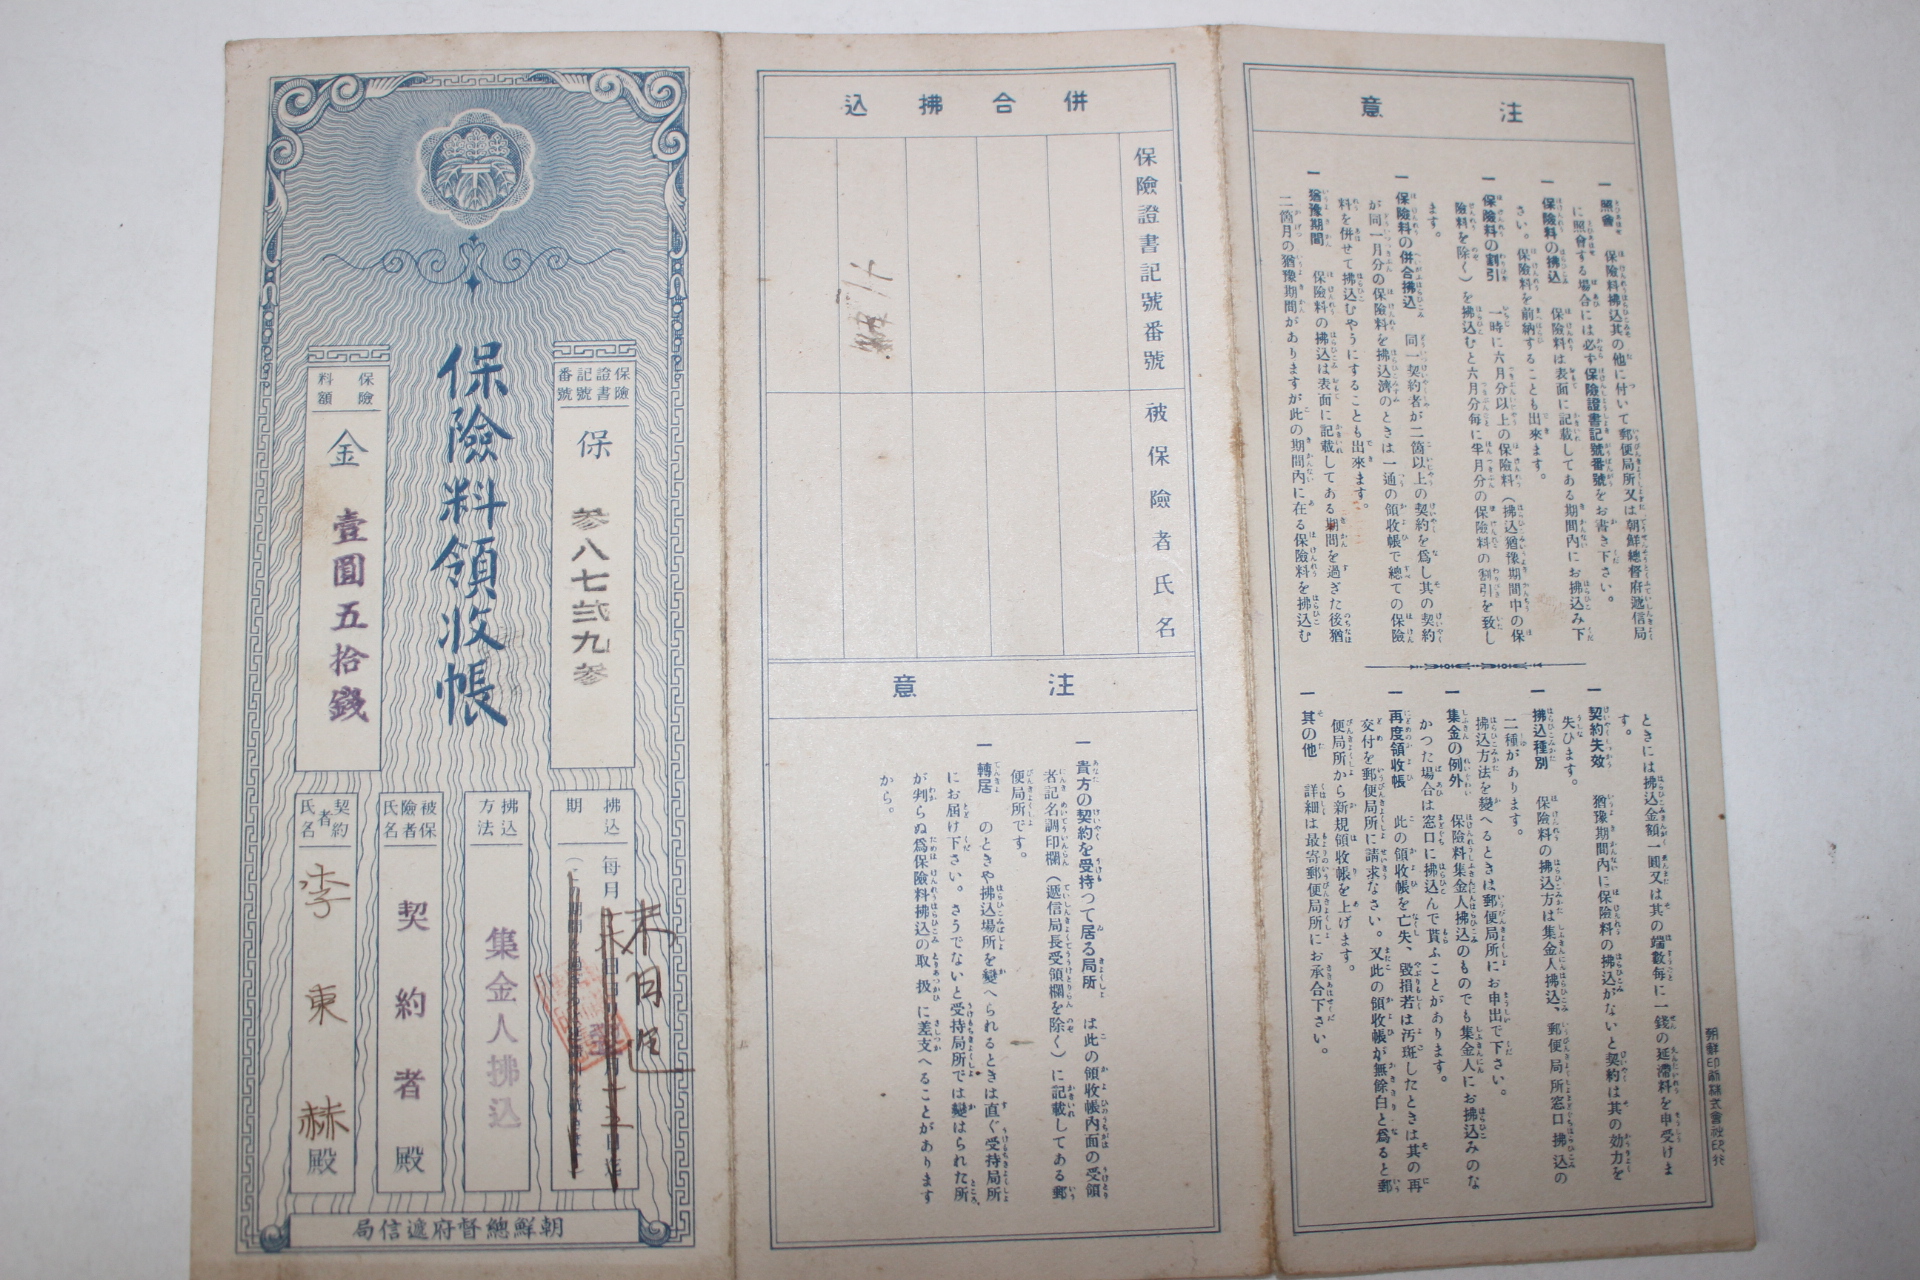 保險料領收帳
保險證書記號番號
保 參八七弐九參
保險料額
金 壹圓五拾錢
拂込期
每月
末日迄
拂込方法
集金人拂込
被保險者氏名
契約者殿
契約者氏名
李東赫殿
朝鮮總督府遞信局
併合拂込
保險證書記號番號
被保險者氏名
注意
一 貴方の契約を受持つて居る局所 は此の領收帳內面の受領
者記名調印欄(遞信局長受領欄を除く)に記載してある郵
便局所です。
一 轉居 のときや拂込場所を變へられるときは直ぐ受持局所
にお屆け下さい。さうでないと受持局所では變はられた所
が判らぬ爲保險料拂込の取扱に差支へることがあります
から。
注意
一 照會 保險料拂込其の他に付いて郵便局所又は朝鮮總督府遞信局
に照會する場合には必ず保險證書記號番號をお書き下さい。
一 保險料の拂込 保險料は表面に記載してある期間內にお拂込み下
さい。保險料を前納することも出來ます。
一 保險料の割引 一時に六月分以上の保險料(拂込猶豫期間中の保
險料を除く)を拂込むと六月分每に半月分の保險料の割引を致し
ます。
一 保險料の併合拂込 同一契約者が二箇以上の契約を爲し其の契約
が同一月分の保險料を拂込濟のときは一通の領收帳で總ての保險
料を併せて拂込むやうにすることも出來ます。
一 猶豫期間 保險料の拂込は表面に記載してある期間を過ぎた後猶
二箇月の猶豫期間がありますが此の期間內に在る保險料を拂込む
ときには拂込金額一圓又は其の端數每に一錢の延滯料を申受けま
す。
一 契約失效 猶豫期間內に保險料の拂込がないと契約は其の効力を
失ひます。
一 拂込種別 保險料の拂込方は集金人拂込、郵便局所窓口拂込の
二種があります。
拂込方法を變へるときは郵便局所にお申出で下さい。
一 集金の例外 保險料集金人拂込のものでも集金人にお拂込みのな
かつた場合は窓口に拂込んで貰ふことがあります。
一 再度領收帳 此の領收帳を亡失、毀損若は汚斑したときは其の再
交付を郵便局所に請求なさい。又此の領收帳が無餘白と爲ると郵
便局所から新規領收帳を上げます。
一 其の他 詳細は最寄郵便局所にお承合下さい。
朝鮮印刷株式會社印行